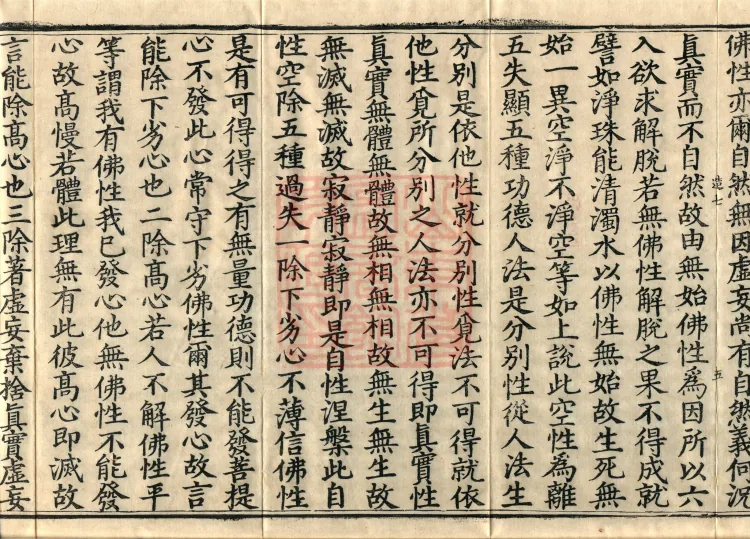 佛性亦爾自然無因虛妄尚有自然義何況
真實而不自然故由無始佛性爲因所以六
入欲求解脫若無佛性解脫之果不得成就
譬如淨珠能清濁水以佛性無始故生死無
始一異空淨不淨空等如上說此空性爲離
五失顯五種功德人法是分別性從人法生
分別是依他性就分別性覓法不可得就依
他性覓所分別之人法亦不可得即真實性
真實無體無體故無相無相故無生無生故
無滅無滅故寂靜寂靜即是自性涅槃此自
性空除五種過失一除下劣心不薄信佛性
是有可得得之有無量功德則不能發菩提
心不發此心常守下劣佛性爾其發心故言
能除下劣心也二除高心若人不解佛性平
等謂我有佛性我已發心他無佛性不能發
心故高慢若體此理無有此彼高心即滅故
言能除高心也三除著虛妄棄捨真實虛妄
造七
五